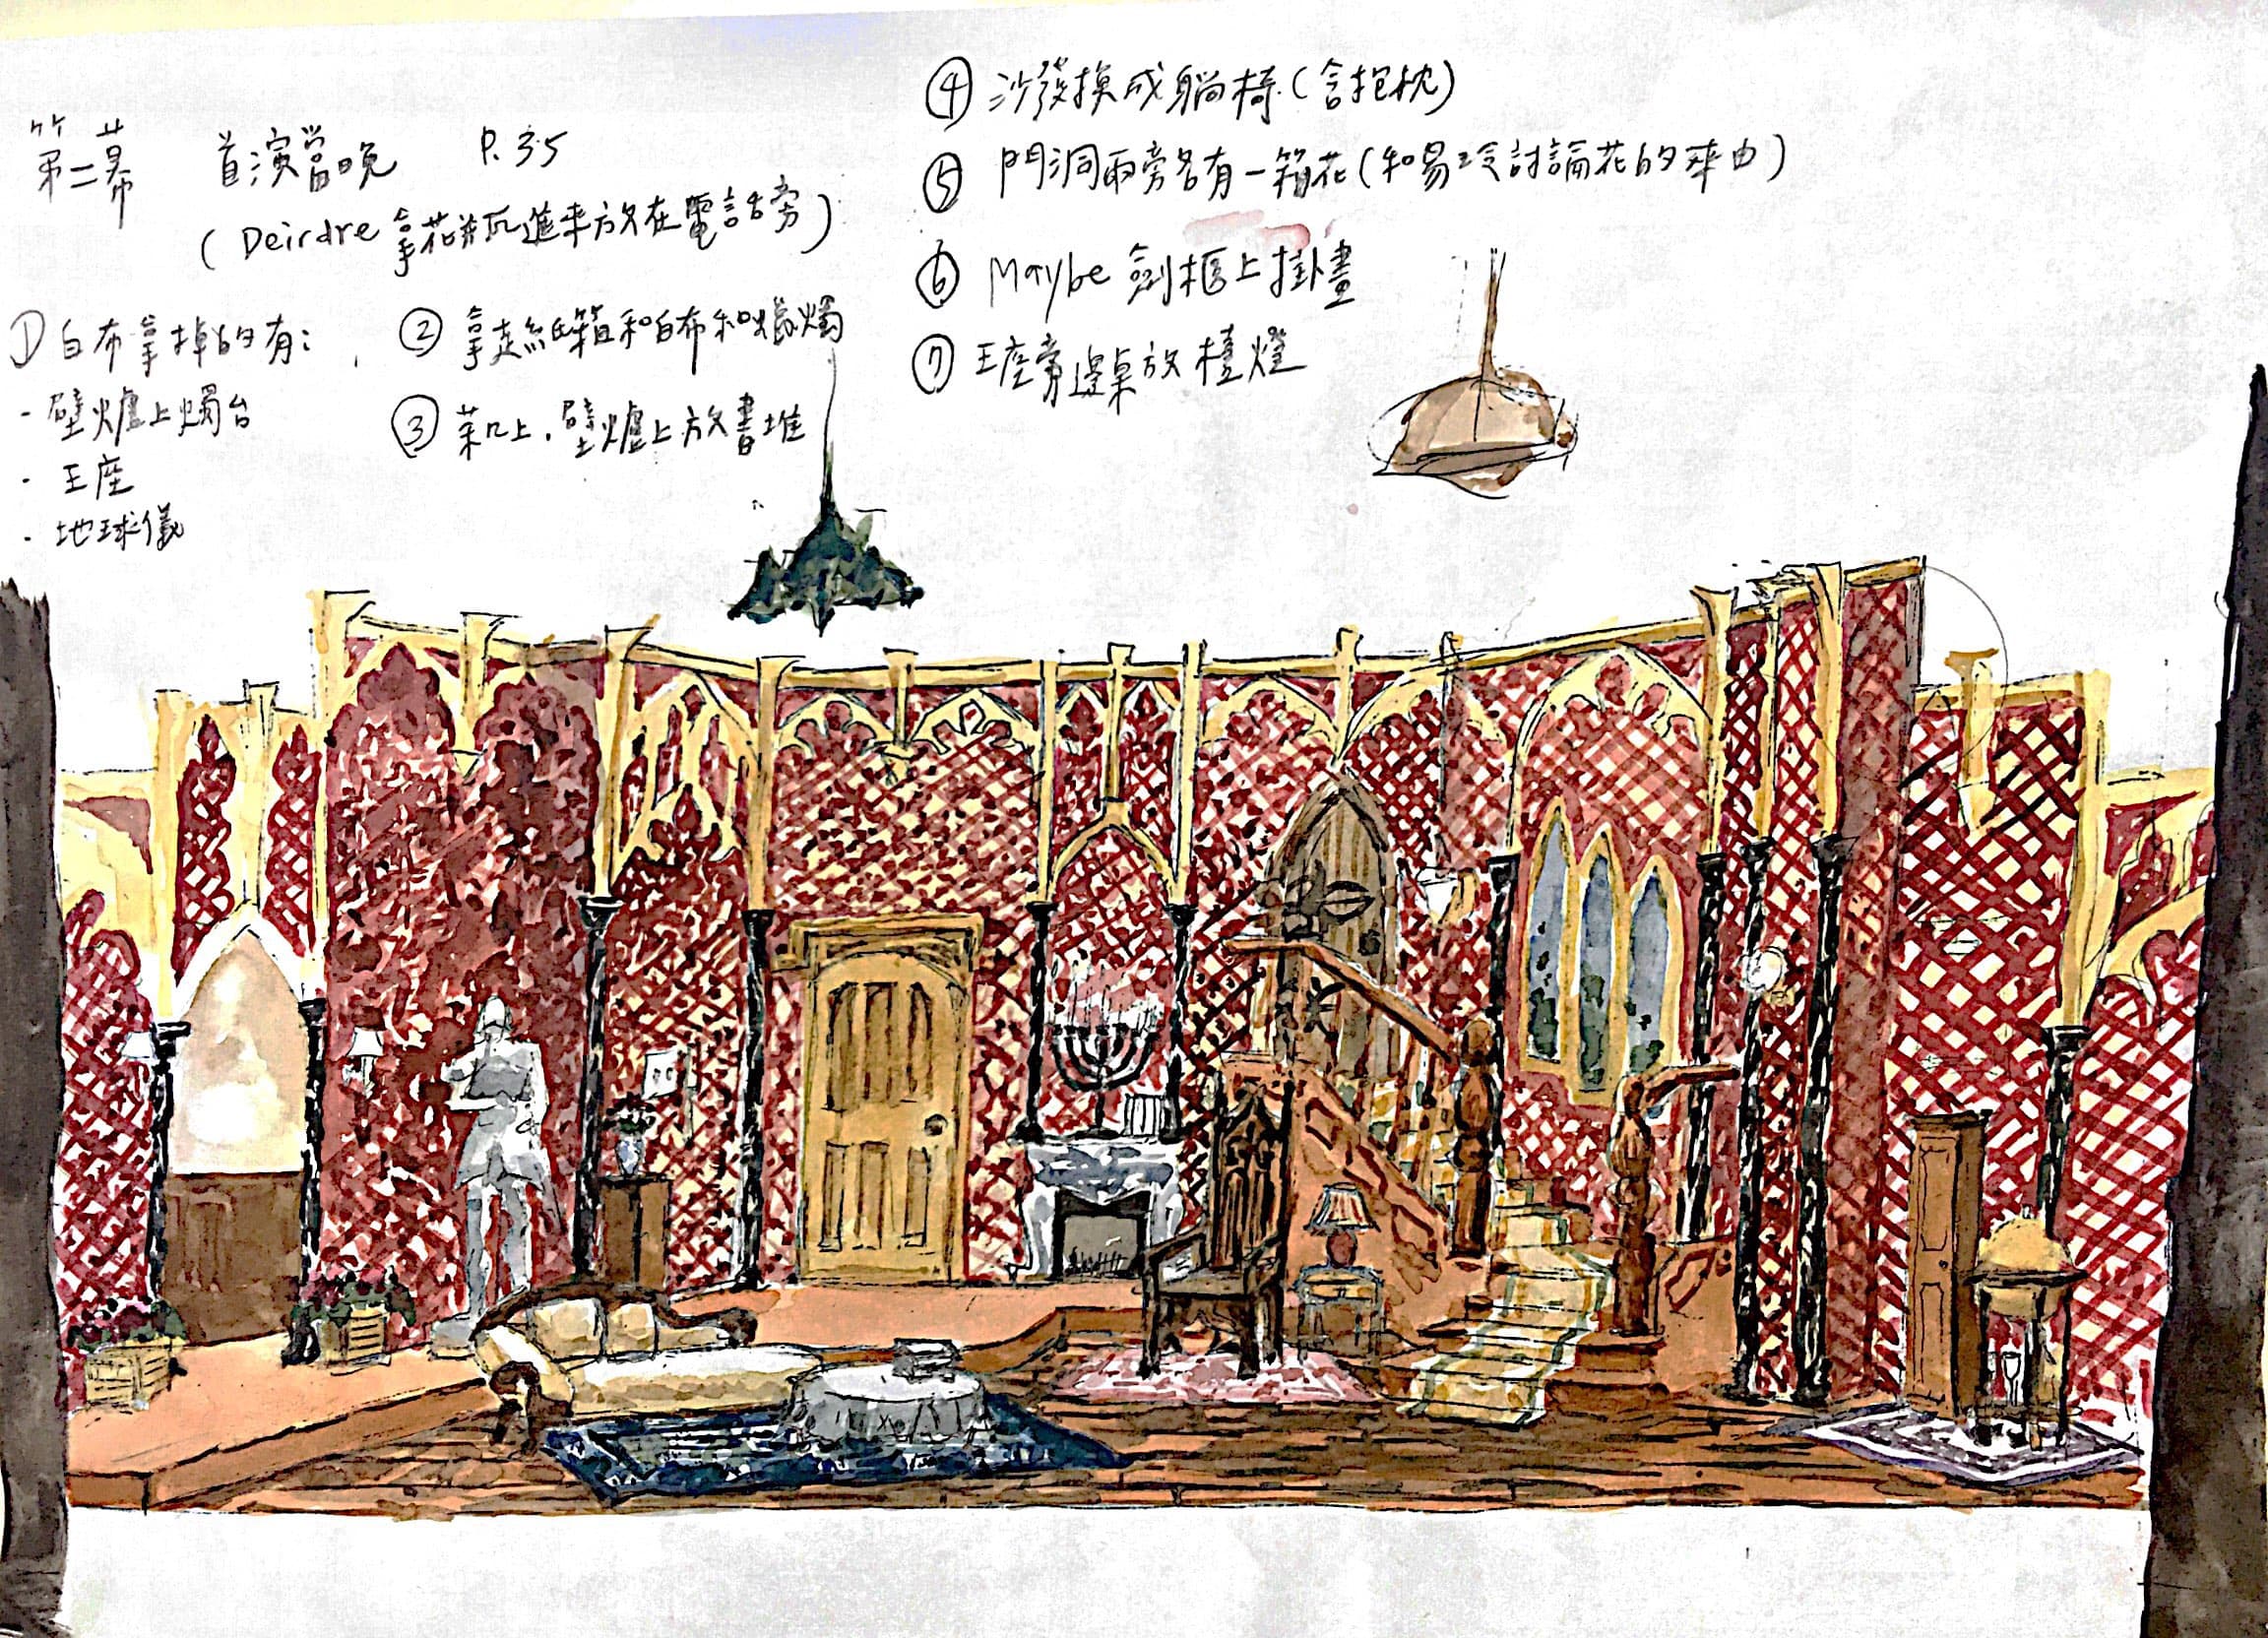 第二幕 首演當晚 P.35
(Deirdre 拿花瓶進來放在電話旁)
① 白布拿掉的有:
- 壁爐上燭台
- 王座
- 地球儀
② 拿走紙箱和白布和蠟燭
③ 茶几上、壁爐上放書堆
④ 沙發換成躺椅(含抱枕)
⑤ 門洞兩旁各有一箱花(和易玲討論花的來由)
⑥ Maybe 劍框上掛畫
⑦ 王座旁邊桌放檯燈